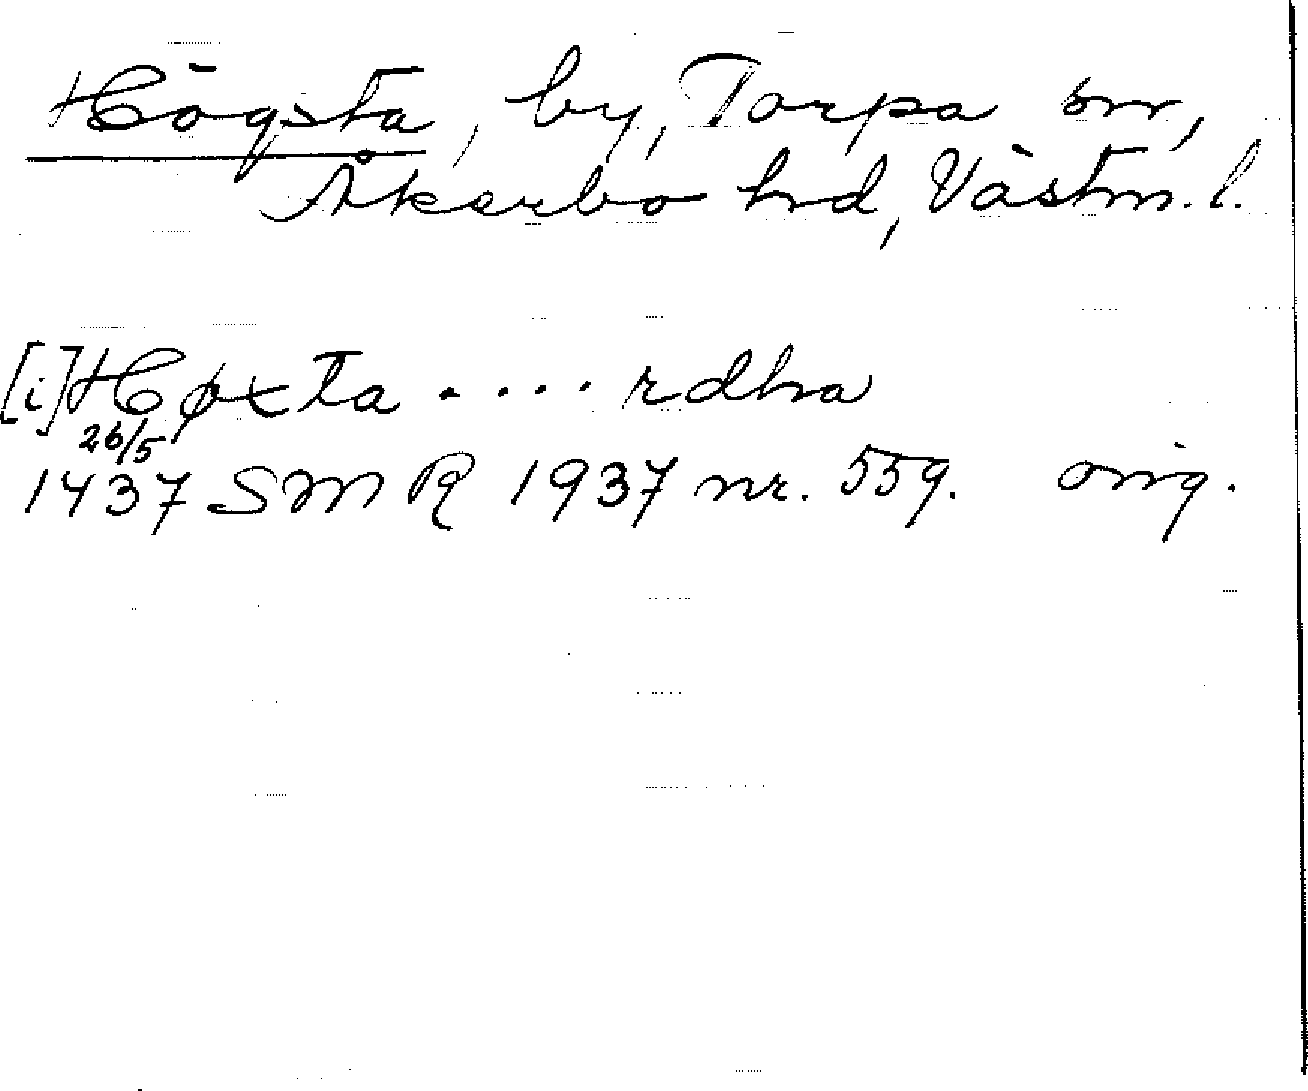 Högsta, by, Torpa sn,
Åkerbo hd, Västm. l.
[i] Høxta . . . . rdha
26/5
1437 SMR 1937 nr. 559. orig.